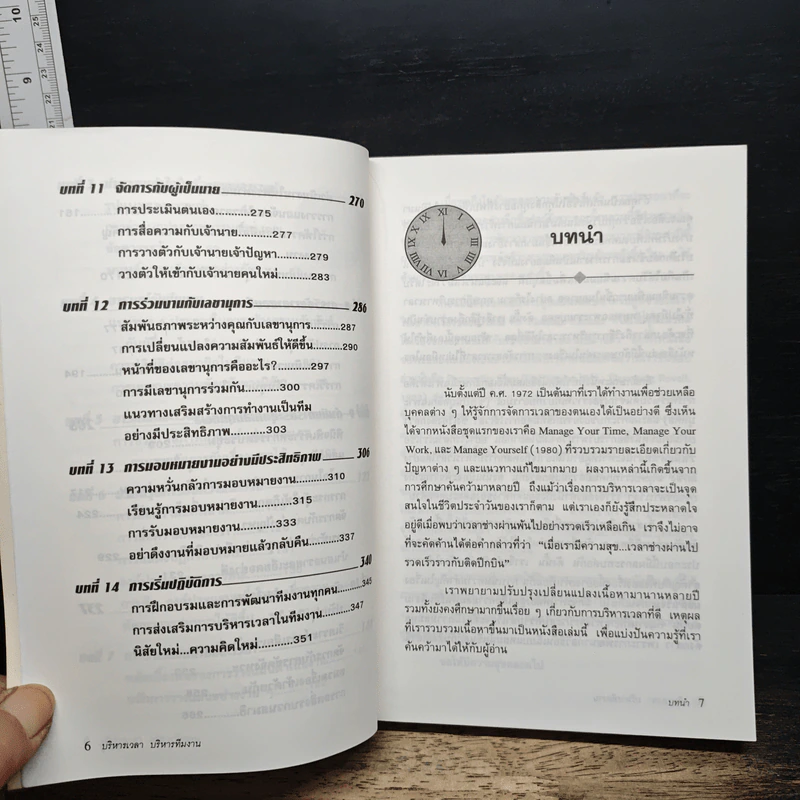 บทที่ 11 จัดการกับผู้เป็นนาย 270
การประเมินตนเอง...........275
การสื่อความกับเจ้านาย...........277
การวางตัวกับเจ้านายเจ้าปัญหา...........279
วางตัวให้เข้ากับเจ้านายคนใหม่...........283
บทที่ 12 การร่วมงานกับเลขานุการ 286
สัมพันธภาพระหว่างคุณกับเลขานุการ...........287
การเปลี่ยนแปลงความสัมพันธ์ให้ดีขึ้น...........290
หน้าที่ของเลขานุการคืออะไร?...........297
การมีเลขานุการร่วมกัน...........300
แนวทางเสริมสร้างการทำงานเป็นทีม
อย่างมีประสิทธิภาพ...........303
บทที่ 13 การมอบหมายงานอย่างมีประสิทธิภาพ 306
ความหวั่นกลัวการมอบหมายงาน...........310
เรียนรู้การมอบหมายงาน...........315
การรับมอบหมายงาน...........333
อย่าดึงงานที่มอบหมายแล้วกลับคืน...........337
บทที่ 14 การเริ่มปฏิบัติการ 340
การฝึกอบรมและการพัฒนาทีมงานทุกคน...........345
การส่งเสริมการบริหารเวลาในทีมงาน...........347
นิสัยใหม่...ความคิดใหม่...........351
6 บริหารเวลา บริหารทีมงาน
บทนำ
นับตั้งแต่ปี ค.ศ. 1972 เป็นต้นมาที่เราได้ทำงานเพื่อช่วยเหลือ
บุคคลต่าง ๆ ให้รู้จักการจัดการเวลาของตนเองได้เป็นอย่างดี ซึ่งเห็น
ได้จากหนังสือชุดแรกของเราคือ Manage Your Time, Manage Your
Work, และ Manage Yourself (1980) ที่รวบรวมรายละเอียดเกี่ยวกับ
ปัญหาต่าง ๆ และแนวทางแก้ไขมากมาย ผลงานเหล่านี้เกิดขึ้นจาก
การศึกษาค้นคว้ามาหลายปี ถึงแม้ว่าเรื่องการบริหารเวลาจะเป็นจุด
สนใจในชีวิตประจำวันของเราก็ตาม แต่เราเองก็ยังรู้สึกประหลาดใจ
อยู่ดีเมื่อพบว่าเวลาช่างผ่านพ้นไปอย่างรวดเร็วเหลือเกิน เราจึงไม่อาจ
ที่จะคัดค้านได้ต่อคำกล่าวที่ว่า "เมื่อเรามีความสุข...เวลาช่างผ่านไป
รวดเร็วราวกับติดปีกบิน"
เราพยายามปรับปรุงเปลี่ยนแปลงเนื้อหามานานหลายปี
รวมทั้งยังคงศึกษามากขึ้นเรื่อย ๆ เกี่ยวกับการบริหารเวลาที่ดี เหตุผล
ที่เรารวบรวมเนื้อหาขึ้นมาเป็นหนังสือเล่มนี้ เพื่อแบ่งปันความรู้ที่เรา
ค้นคว้ามาได้ให้กับผู้อ่าน
บทนำ 7